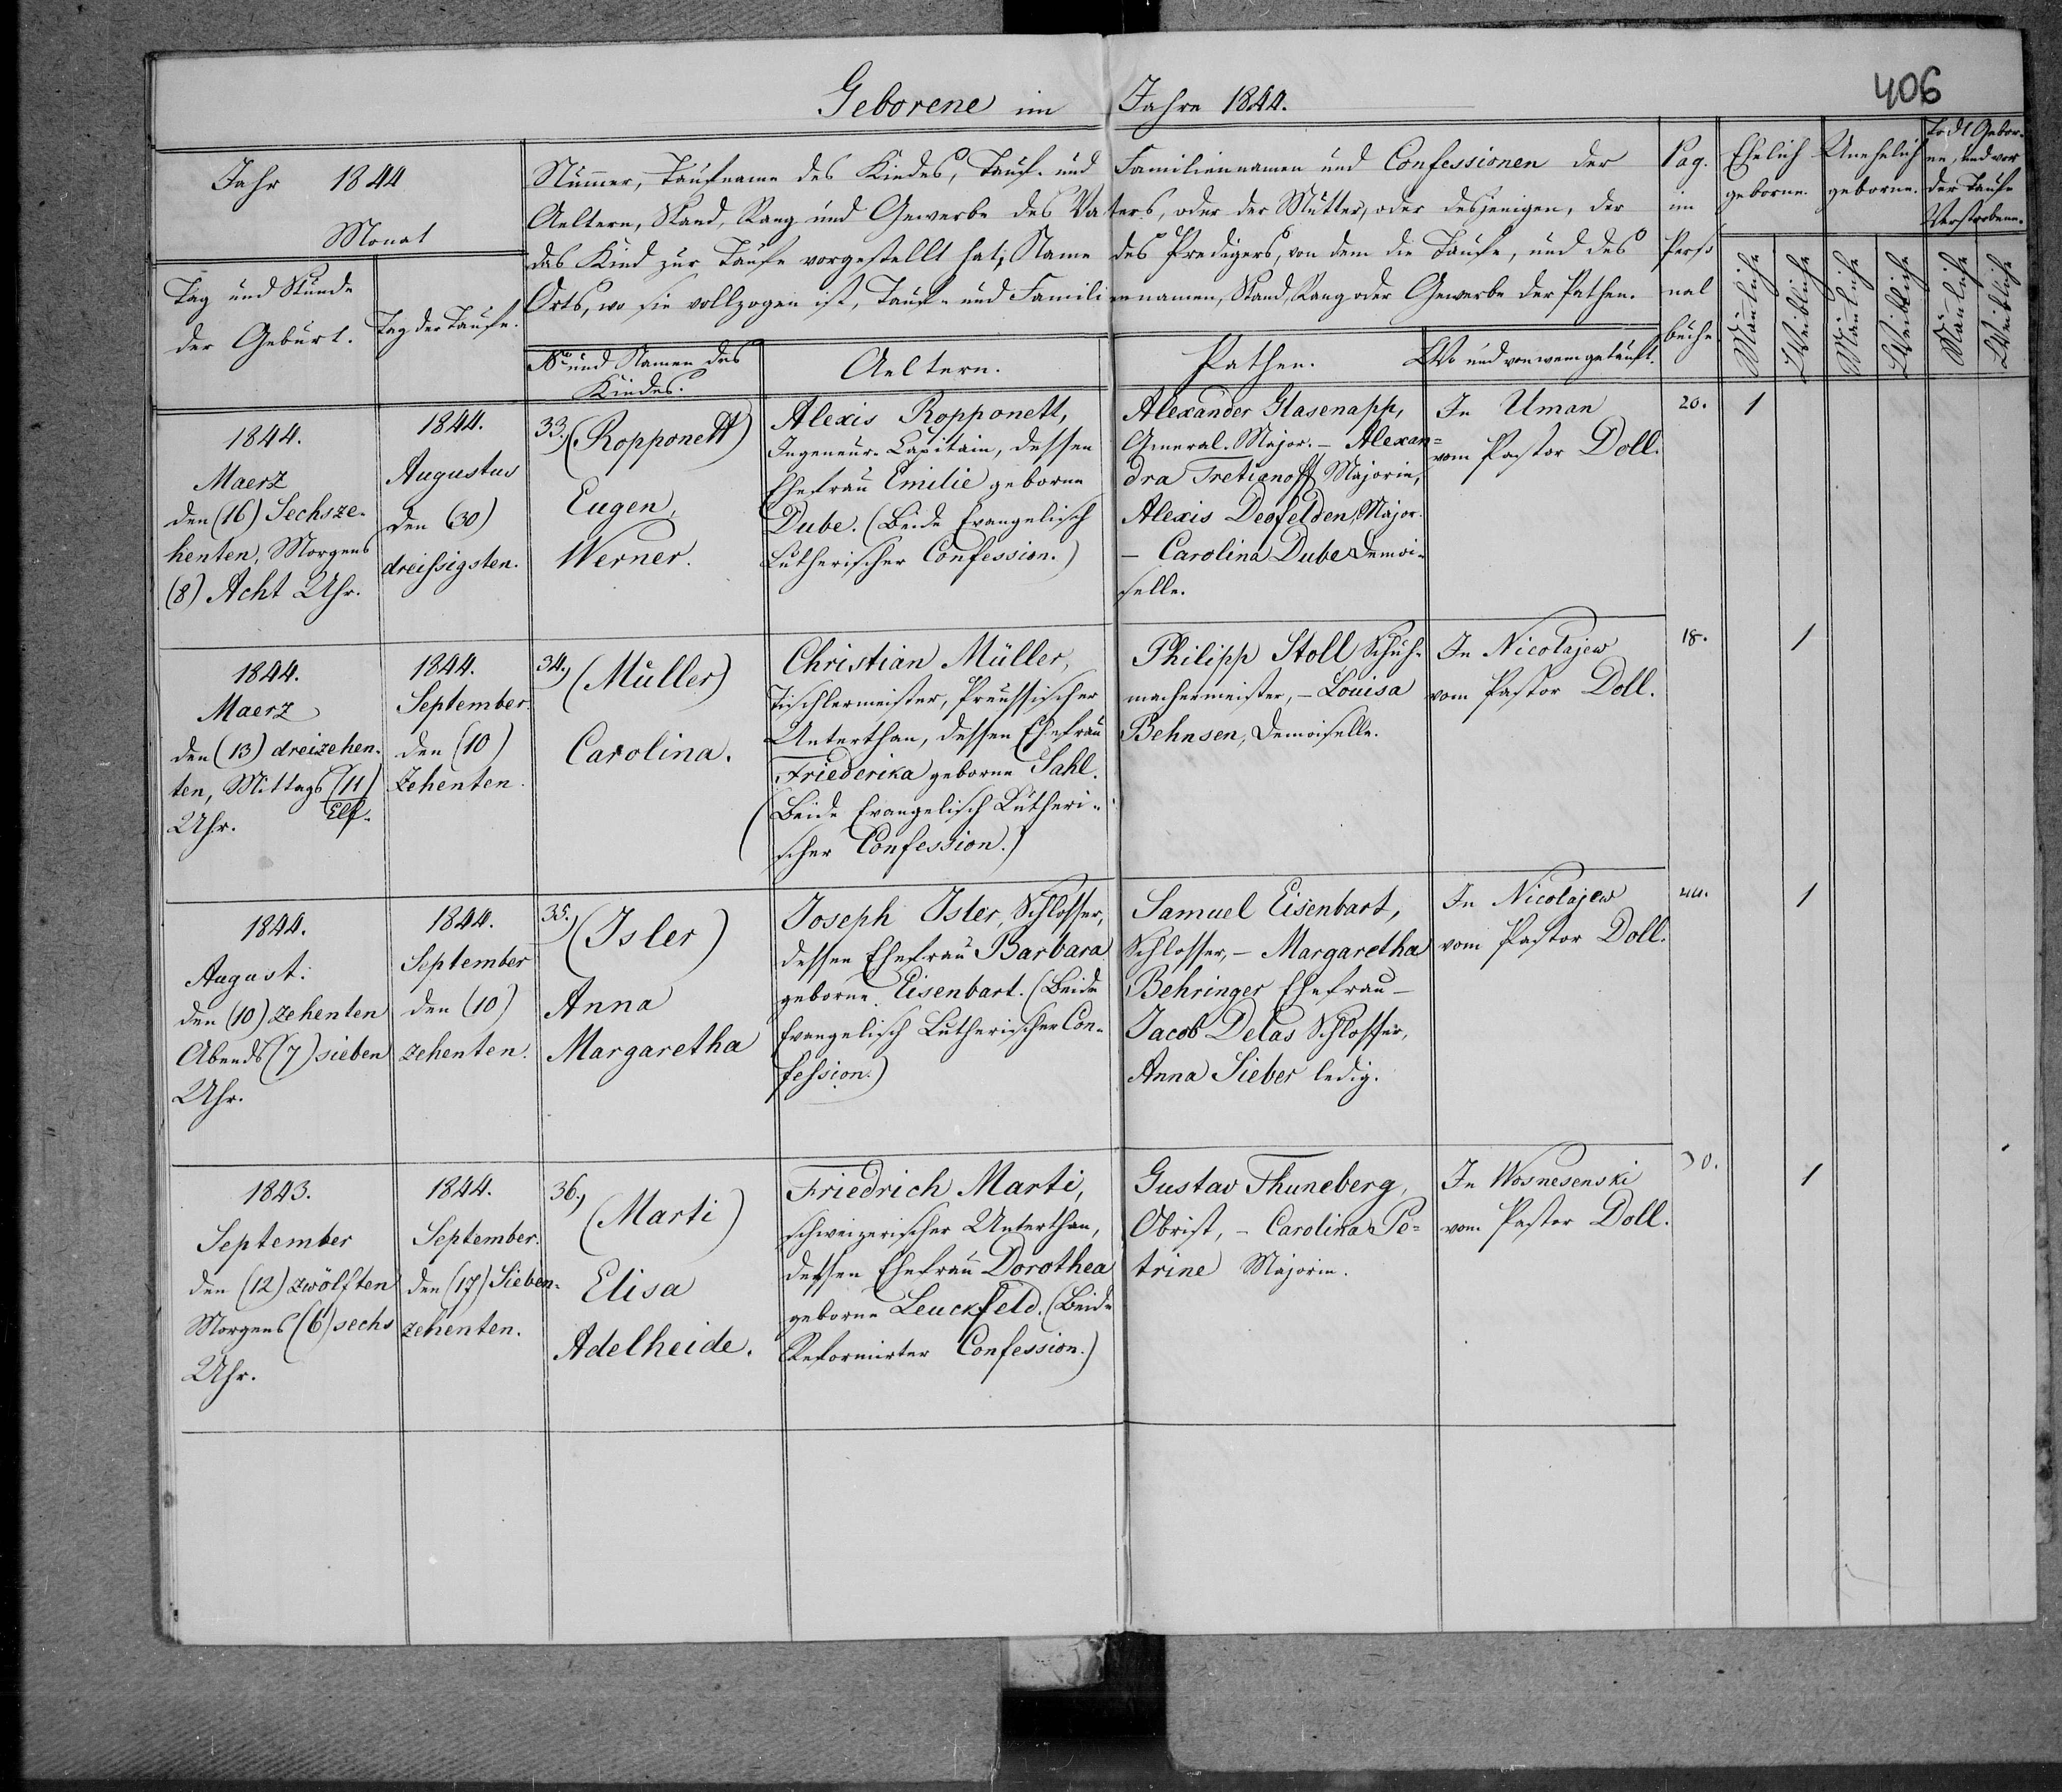 406
Geborene im Jahre 1844.
Jahr 1844
Monat
Tag und Stunde
der Geburt.
Tag der Taufe.
Numer, Taufname des Kindes, Tauf- und Familiennamen und Confessionen der
Aeltern, Stand, Rang und Gewerbe des Vaters, oder der Mutter, oder desjenigen, der
das Kind zur Taufe vorgestellt hat; Name des Predigers, von dem die Taufe, und des
Orts, wo sie vollzogen ist, Tauf- und Familiennamen, Stand, Rang oder Gewerbe der Pathen.
No und Namen des
Kindes.
Aeltern.
Pathen.
Wo und von wem getauft.
Pag.
im
Perso
nal
buche
Ehelich
geborne.
Unehelich
geborne.
Todt Gebor-
ne, und vor
der Taufe
Verstorbene.
Mänliche
Weibliche
Mänliche
Weibliche
Mänliche
Weibliche
1844.
Maerz
den (16) Sechsze-
henten, Morgens
(8) Acht Uhr.
1844.
Augustus
den (30)
dreissigsten.
33.) (Ropponett)
Eugen,
Werner.
Alexis Ropponett,
Ingeneur-Capitain, dessen
Ehefrau Emilie geborne
Dube. (Beide Evangelisch
Lutherischer Confession.)
Alexander Glasenapp,
General-Major. - Alexan=
dra Tretienoff Majorin,
Alexis Deofelden, Major.
- Carolina Dube Demoi-
selle.
In Uman
vom Pastor Doll.
20.
1
1844.
Maerz
den (13) dreizehen-
ten, Mittags (11)
Uhr. Elf.
1844.
September
den (10)
Zehenten.
34.) (Müller)
Carolina.
Christian Müller,
Tischlermeister, Preussischer
Unterthan, dessen Ehefrau
Friederika geborne Sahl.
(Beide Evangelisch Lutheri-
scher Confession.)
Philipp Stoll Schuh-
machermeister, - Louisa
Behnsen, Demoiselle.
In Nicolajew
vom Pastor Doll.
18.
1
1844.
August.
den (10) zehenten
Abends (7) sieben
Uhr.
1844.
September
den (10)
zehenten.
35.) (Isler)
Anna
Margaretha
Joseph Isler, Schlosser,
dessen Ehefrau Barbara
geborne Eisenbart. (Beide
Evangelisch Lutherischer Con-
fession.)
Samuel Eisenbart,
Schlosser, - Margaretha
Behringer Ehefrau -
Jacob Delas Schlosser,
Anna Sieber ledig.
In Nicolajew
vom Pastor Doll.
44.
1
1843.
September
den (12) zwölften
Morgens (6) sechs
Uhr.
1844.
September.
den (17) Sieben-
zehenten.
36.) (Marti)
Elisa
Adelheide.
Friedrich Marti,
schweizerischer Unterthan,
dessen Ehefrau Dorothea
geborne Leuckfeld. (Beide
Reformirter Confession.)
Gustav Thuneberg,
Obrist, - Carolina Pe=
trine Majorin.
In Wosnesenski
vom Pastor Doll.
1